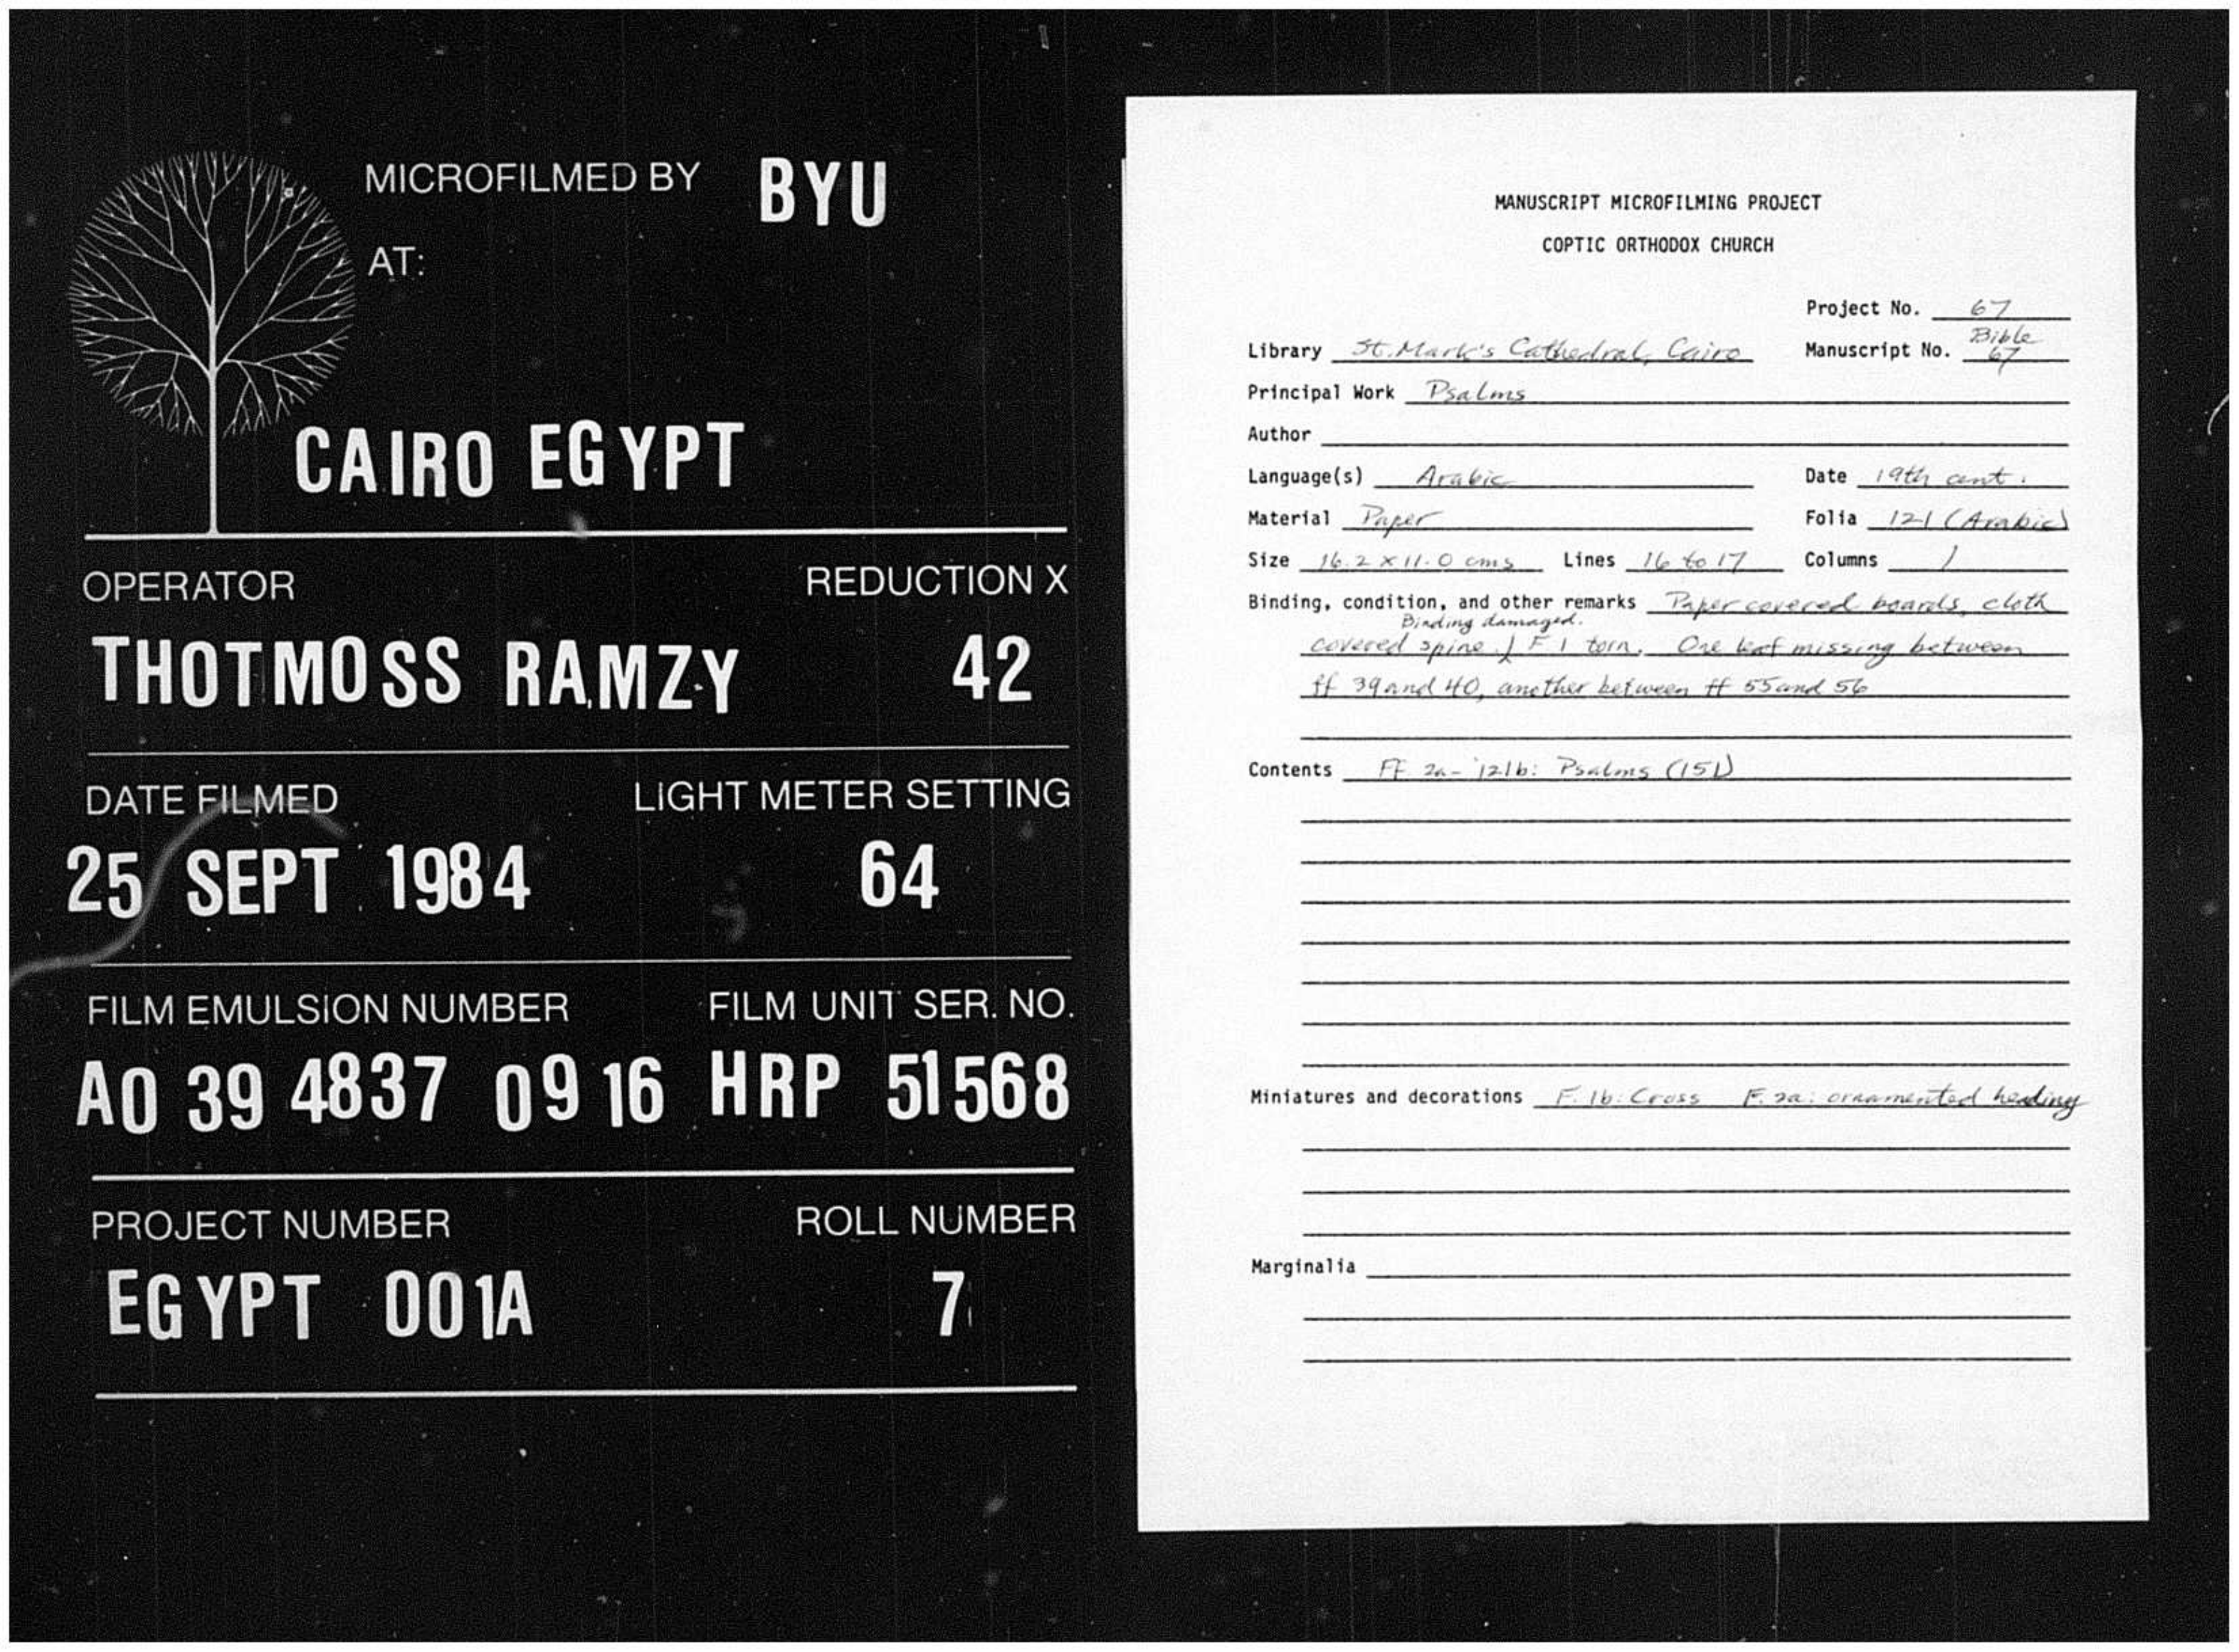 MICROFILMED BY BYU
AT:
CAIRO EGYPT
OPERATOR REDUCTION X
THOTMOSS RAMZY 42
DATE FILMED LIGHT METER SETTING
25 SEPT 1984 64
FILM EMULSION NUMBER FILM UNIT SER. NO.
A0 39 4837 09 16 HRP 51568
PROJECT NUMBER ROLL NUMBER
EGYPT 001A 7
MANUSCRIPT MICROFILMING PROJECT
COPTIC ORTHODOX CHURCH
Project No. 67
Bible
Library St. Mark's Cathedral, Cairo Manuscript No. 67
Principal Work Psalms
Author
Language(s) Arabic Date 19th cent.
Material Paper Folia 121 (Arabic)
Size 16.2 x 11.0 cms Lines 16 to 17 Columns 1
Binding, condition, and other remarks Paper covered boards, cloth
Binding damaged.
covered spine. F 1 torn. One leaf missing between
ff 39 and 40, another between ff 55 and 56
Contents FF 2a-121b: Psalms (151)
Miniatures and decorations F. 1b: Cross F. 2a: ornamented heading
Marginalia